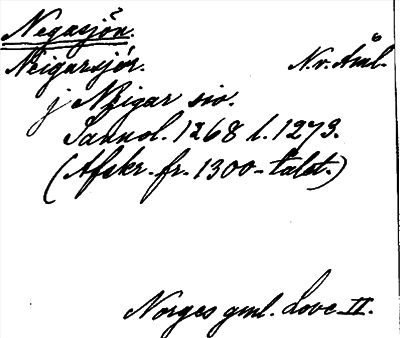 Negasjön.
Neigarsjór. N.v. Åml.
j Neigar sio.
Sannol. 1268 l. 1273.
(Afskr. fr. 1300-talet.)
Norges gml. Love II.